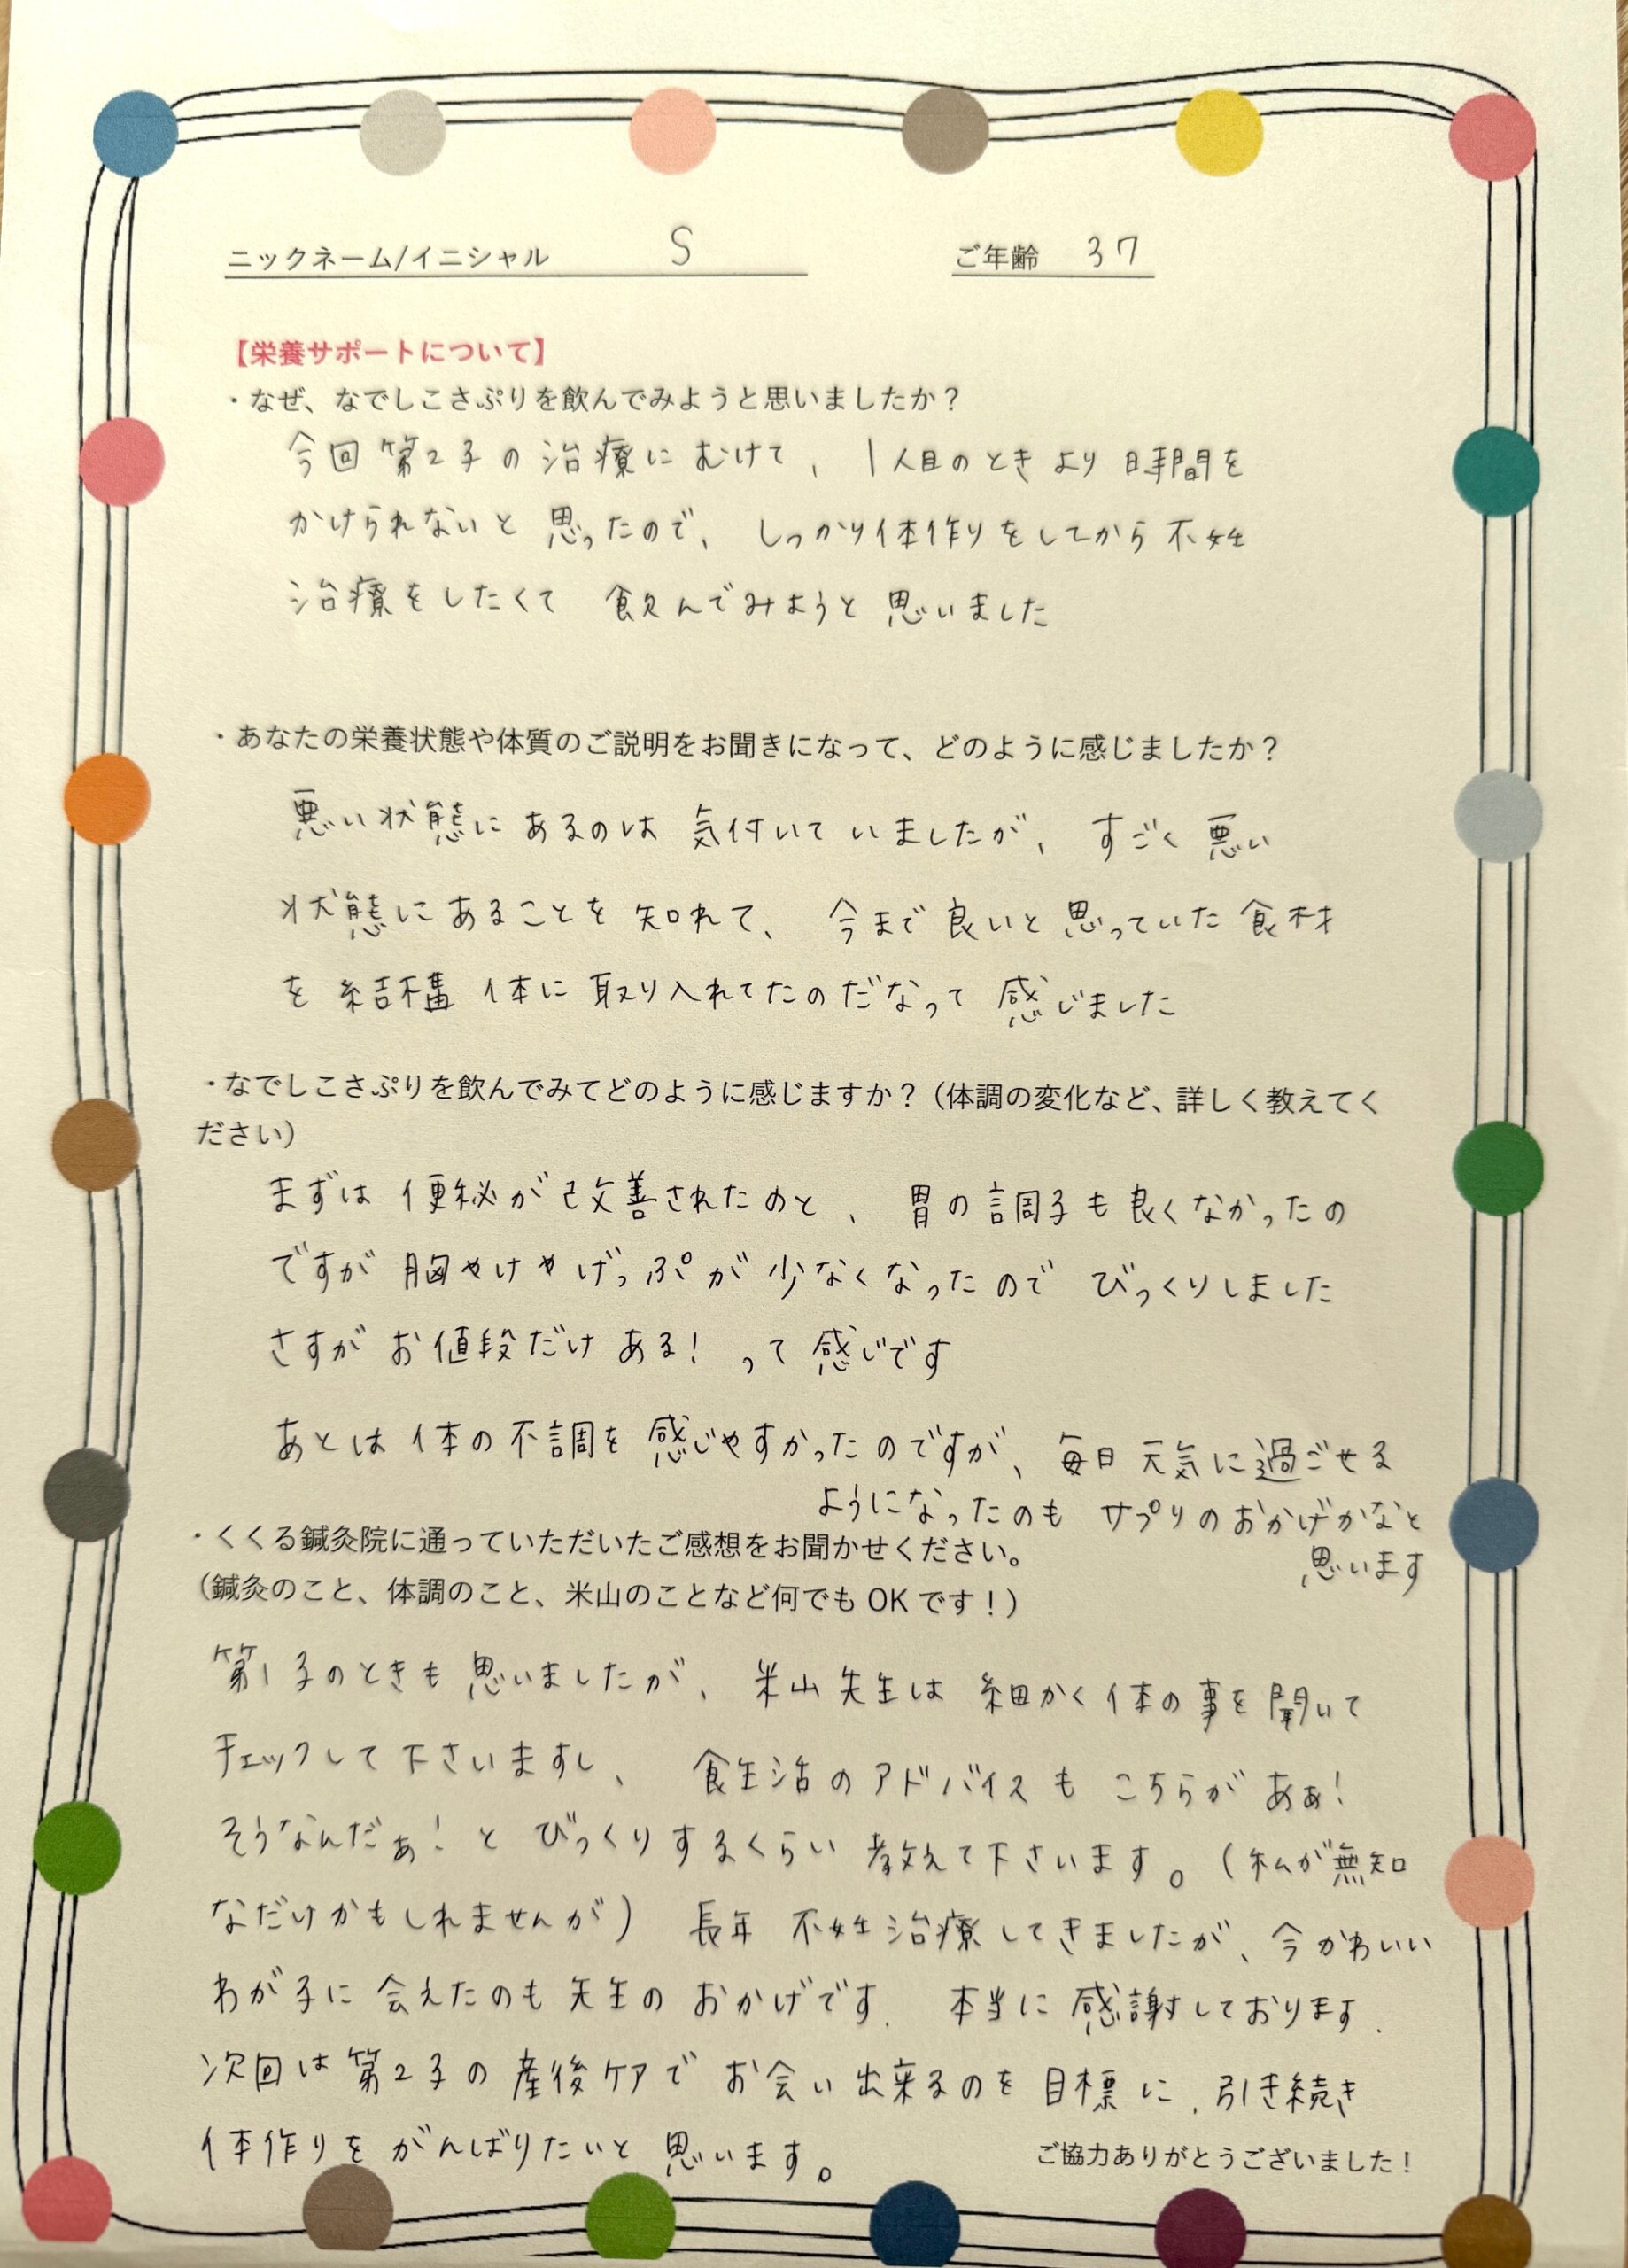 ニックネーム/イニシャル S ご年齢 37
【栄養サポートについて】
・なぜ、なでしこさぷりを飲んでみようと思いましたか？
今回第2子の治療にむけて、1人目のときより時間を
かけられないと思ったので、しっかり体作りをしてから不妊
治療をしたくて 飲んでみようと思いました
・あなたの栄養状態や体質のご説明をお聞きになって、どのように感じましたか？
悪い状態にあるのは気付いていましたが、すごく悪い
状態にあることを知れて、今まで良いと思っていた食材
を結構体に取り入れてたのだなって感じました
・なでしこさぷりを飲んでみてどのように感じますか？（体調の変化など、詳しく教えてく
ださい）
まずは便秘が改善されたのと、胃の調子も良くなかったの
ですが胸やけやげっぷが少なくなったのでびっくりしました
さすがお値段だけある！って感じです
あとは体の不調を感じやすかったのですが、毎日天気に過ごせる
ようになったのもサプリのおかげかなと
思います
・くくる鍼灸院に通っていただいたご感想をお聞かせください。
（鍼灸のこと、体調のこと、米山のことなど何でもOKです！）
第1子のときも思いましたが、米山先生は細かく体の事を聞いて
チェックして下さいますし、食生活のアドバイスもこちらがあぁ！
そうなんだぁ！とびっくりするくらい教えて下さいます。（私が無知
なだけかもしれませんが）長年不妊治療してきましたが、今かわいい
わが子に会えたのも先生のおかげです．本当に感謝しております．
次回は第2子の産後ケアでお会い出来るのを目標に、引き続き
体作りをがんばりたいと思います。
ご協力ありがとうございました！